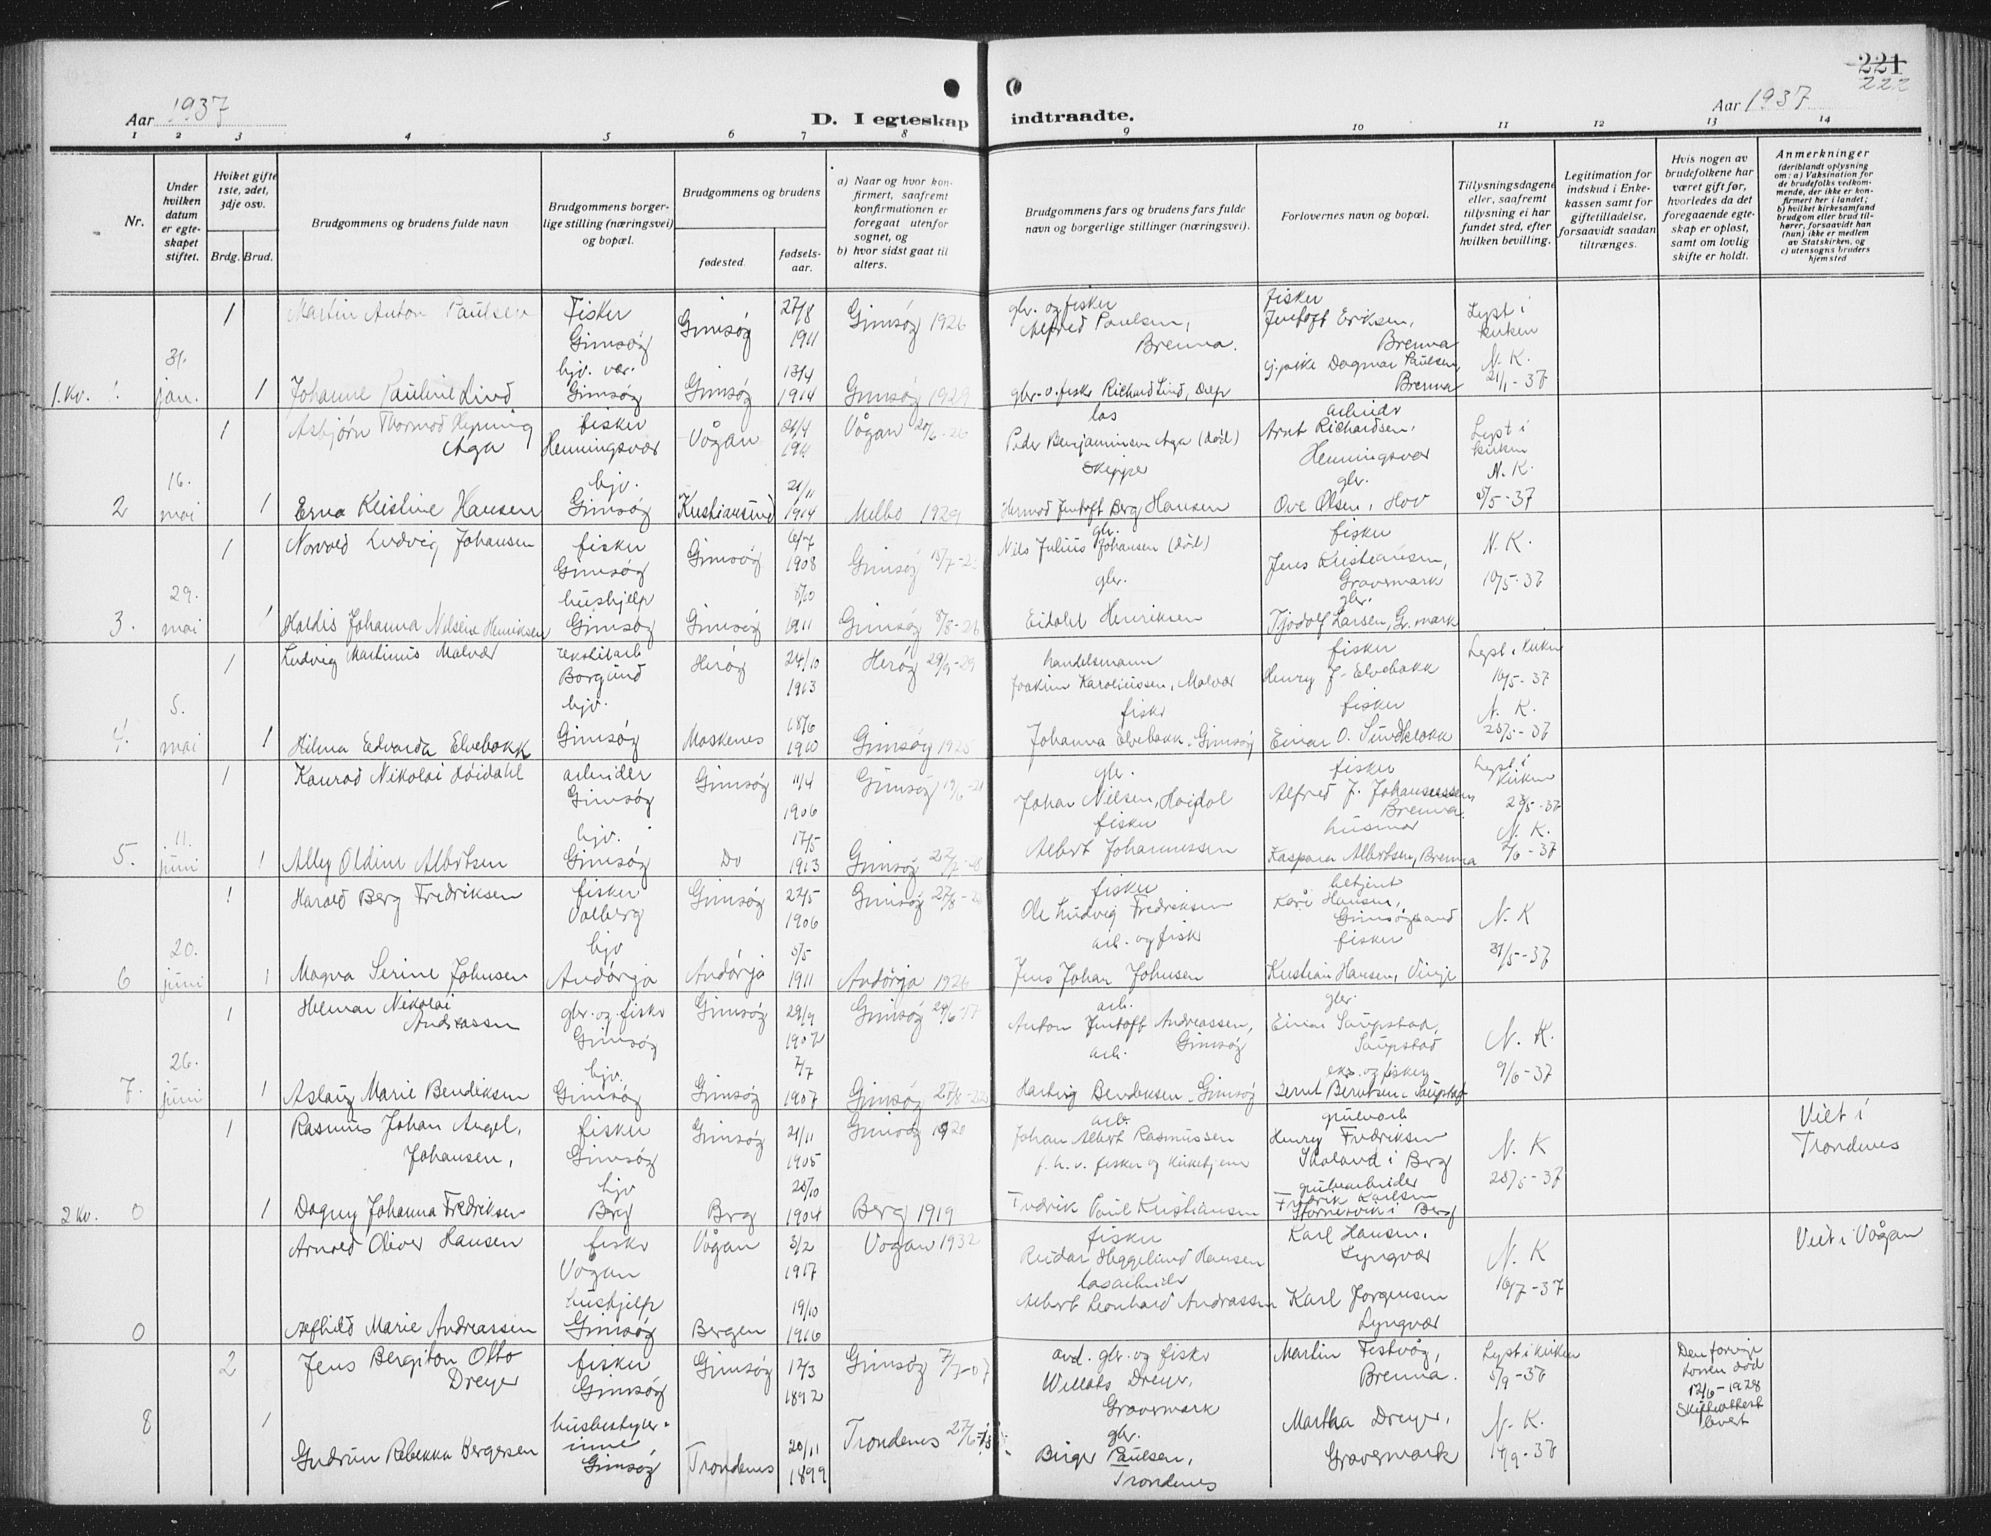 221
222
Aar 1937
D. I egteskap indtraadte.
Aar 1937
1 2 3 4 5 6 7 8 9 10 11 12 13 14
Nr.
Under hvilken datum er egteskapet stiftet.
Hviket gifte 1ste, 2det, 3dje osv.
Brdg. Brud.
Brudgommens og brudens fulde navn
Brudgommens borgerlige stilling (næringsvei) og bopæl.
Brudgommens og brudens
fødested.
fødselsaar.
a) Naar og hvor konfirmert, saafremt konfirmationen er foregaat utenfor sognet, og
b) hvor sidst gaat til alters.
Brudgommens fars og brudens fars fulde navn og borgerlige stillinger (næringsvei).
Forlovernes navn og bopæl.
Tillysningsdagene eller, saafremt tillysning ei har fundet sted, efter hvilken bevilling.
Legitimation for indskud i Enkekassen samt for giftetilladelse, forsaavidt saadan tiltrænges.
Hvis nogen av brudefolkene har været gift før, hvorledes da det foregaaende egteskap er opløst, samt om lovlig skifte er holdt.
Anmerkninger
(deriblandt oplysning om: a) Vaksination for de brudefolks vedkommende, der ikke er konfirmert her i landet; b) hvilket kirkesamfund brudgom eller brud tilhører, forsaavidt han (hun) ikke er medlem av Statskirken, og c) utensogns bruders hjemsted
1 Martin Anton Paulsen Fisker Gimsøy Gimsøy 27/8 1911 Gimsøy 1926 gbr. og fisker Alfred Paulsen, Brenna. fisker Jentoft Eriksen, Brenna Lyst i kirken
1. kv. 1 31. jan. 1 Johanne Pauline Lind hjv. vær. Gimsøy Gimsøy 13/4 1914 Gimsøy 1929 gbr. o. fisker Richard Lind, Delp Dagmar Paulsen, Brenna N. K. 21/1-37
1 Asbjørn Thormod Hyning Aga fisker Henningsvær Vågan 26/4 1911 Vågan 20/6-26 los Peder Benjaminsen Aga (død) arbeider Arnt Richardsen, Henningsvær Lyst i kirken
2 16. mai 1 Erna Kristine Hansen hjv. Gimsøy Kristiansund 21/11 1914 Melbo 1929 Skipper Hermod Jentoft Berg Hansen gbr. Ove Olsen, Hov N. K. 8/5-37
1 Norvald Ludvig Johansen fisker Gimsøy Gimsøy 6/7 1908 Gimsøy gbr. Nils Julius Johansen (død) fisker Jens Kristiansen, Gravermark N. K. 10/5-37
3. 29. mai 1 Haldis Johanna Nilsine Henriksen hushjelp Gimsøy Gimsøy 8/10 1911 Gimsøy 8/8-26 gbr. Eidolf Henriksen gbr. Tjodolf Larsen, Gr. mark
1 Ludvig Martinus Malvær tekstilarb Borgund Herøy 24/10 1913 Herøy 29/9-29 handelsmann Joakim Karoliussen, Malvær fisker Henry J. Elvebakk Lyst i kirken 16/5-37
4. 5. mai 1 Hilma Edvarda Elvebakk hjv. Gimsøy Moskenes 18/6 1910 Gimsøy 1925 fisker Johannes Elvebakk, Gimsøy fisker Einar O. Sundklakk N. K. 28/5-37
1 Konrad Nikolai Høidahl arbeider Gimsøy Gimsøy 11/4 1906 Gimsøy 19/6-21 gbr. Johan Nilsen, Høidal fisker Alfred J. Johannessen Brenna Lyst i kirken
5. 11. juni 1 Alley Oldine Albertsen hjv. Gimsøy Do 17/5 1913 Gimsøy fisker Albert Johannessen husmor Kaspara Albertsen, Brenna N. K. 2/6-37
1 Harald Berg Fredriksen fisker Valberg Gimsøy 22/5 1906 Gimsøy fisker Ole Ludvig Fredriksen betjent Kåre Hansen, Gimsøysand N. K
6 20. juni 1 Magna Serine Johnsen hjv Andørja Andørja 5/5 1911 Andørja 1926 arb. og fisker Jens Johan Johnsen fisker Kristian Hansen, Vinje 31/5-37
1 Helmar Nikolai Andreassen gbr. og fisker Gimsøy Gimsøy 29/9 1902 Gimsøy 24/6-17 arb. Anton Jentoft Andreassen, Gimsøy gbr. Einar Saupstad, Saupstad N. K.
7. 26. juni 1 Aslaug Marie Bendiksen hjv. Gimsøy Gimsøy 7/7 1907 Gimsøy 27/8-22 arb. Hartvig Bendiksen, Gimsøy eks. og fisker Bernt Berntsen, Saupstad 9/6-37
1 Rasmus Johan Angel, Johansen, fisker Gimsøy Gimsøy 21/11 1905 Gimsøy 1920 arb. Johan Albert Rasmussen f. h. v. fisker og kirketjener grubearb Henry Fredriksen Skaland i Berg N. K 28/5-37 Viet i Trondenes
2 kv. 0 1 Dagny Johanna Fredriksen hjv Berg Berg 20/10 1904 Berg 1919 Fredrik Paul Kristiansen grubearbeider Fredrik Karlsen Hornervik i Berg
Arnold Oliver Hansen fisker Vågan Vågan 3/2 1917 Vågan 1932 fisker Reidar Heggelund Hansen Karl Hansen, Lyngvær N. K Viet i Vågan
0 Alfhild Marie Andreassen hushjelp Gimsøy Bergen 19/10 1916 løsarbeider Albert Leonhard Andreassen Karl Jørgensen Lyngvær 10/7-37
2 Jens Bergiton Otto Dreyer fisker Gimsøy Gimsøy 12/3 1892 Gimsøy 7/7-07 avd. gbr. og fisker Willats Dreyer, Gravermark Martin Festvåg, Brenna. Lyst i kirken 5/9-36 Den forrige konen død 12/6-1928 Skifteattest levert
8 1 Gudrun Rebekka Bergersen husbestyrerinne Gimsøy Trondenes 20/11 1899 Trondenes gbr. Birger Paulsen, Trondenes Martha Dreyer, Gravermark N. K. 14/9-36